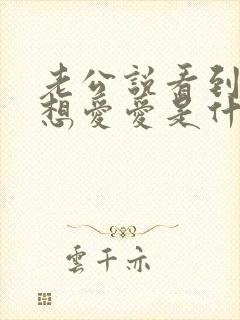 老公說看到
想愛愛是什
雲千亦